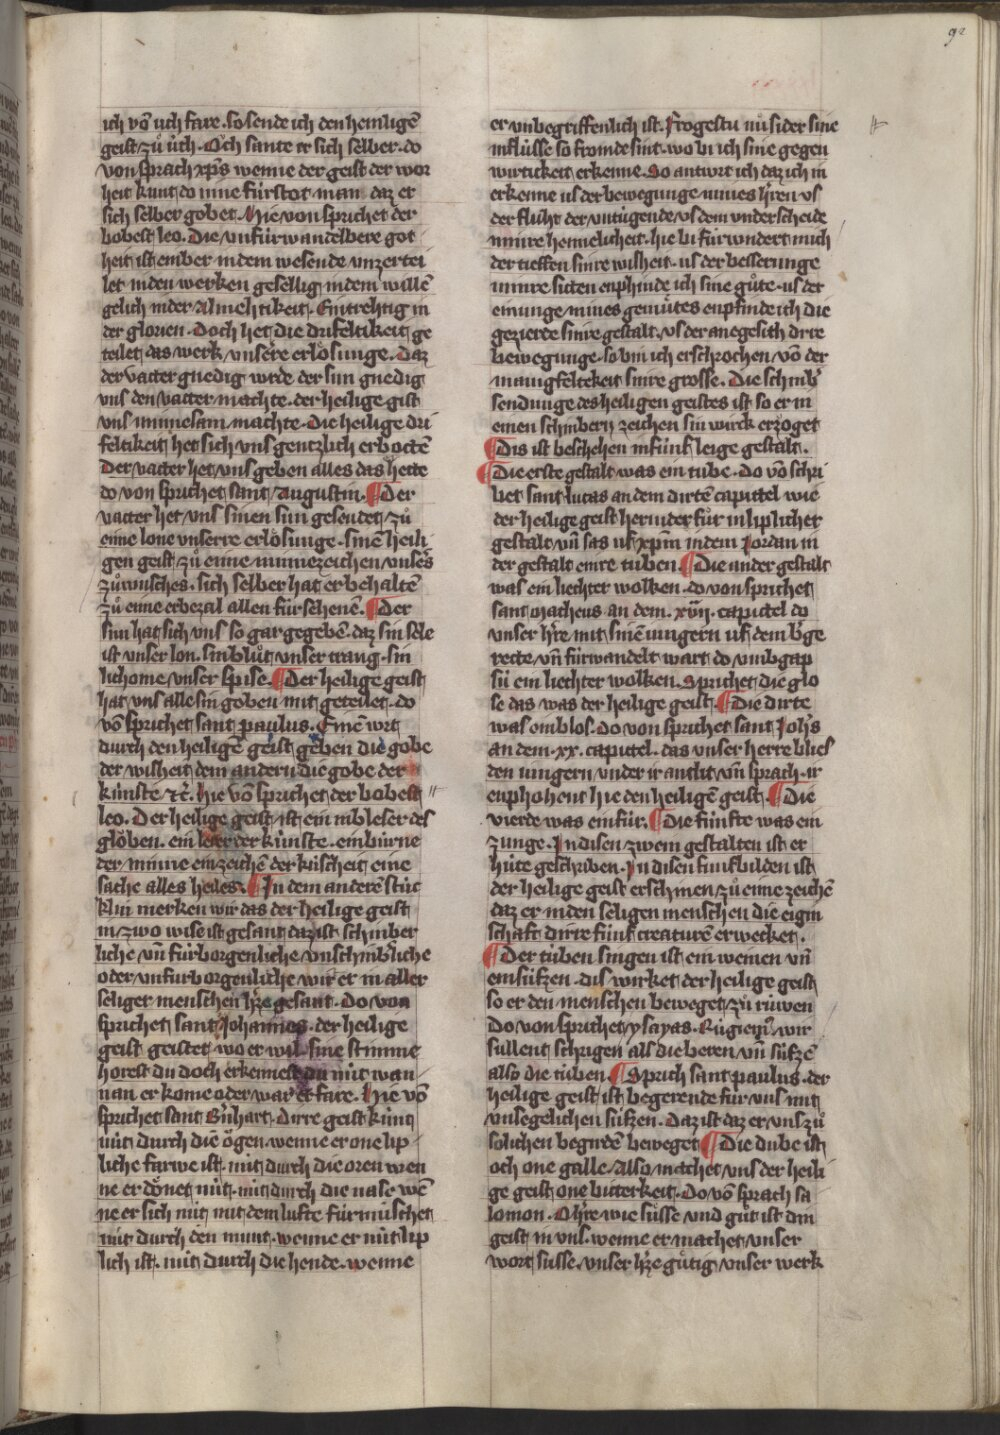 92
ich võ uch fare. so sende ich den heiiligē
geist zů ůch. Och sante er sich selber. do
von sprach xp̄s wenne der geist der wor
heit kunt do inne fůrstot man daz er
sich selber gobet. Hie von sprichet der
bobest leo. Die vnfůrwandelbere got
heit ist ember in dem wesende vnzertei
let in den werken gesellig in dem willē
gelich in der Almehtikeit. Eintrehtig in
der glorien. Doch het die drifeltikeit ge
teilet das werk vnsere erlösunge. Daz
der vatter gnedig wrde der sun gnedig
vns den vatter machte. der heilige gist
vns minnesam machte. Die heilige dri
feltikeit het sich vns gentzlich erbottē
Der vatter het vns geben alles das hette
do von sprichet sant Augustin. ¶ Der
vatter het vns sinen sun gesendet zů
eime lone vnserre erlösunge. sinē heili
gen geist zů eime minnezeichen vnsers
zůwusches. sich selber hat er behaltē
zů eime erbezal allen fürsehenē. ¶ Der
sun hat sich vns so gar gegebē. daz sin sele
ist vnser lon. sin blůt vnser trang. sin
lichome vnser spise. ¶ Der heilige geist
hat vns alle sin goben mit geteilet. do
võ sprichet sant paulus. Eimē wrt
durch den heiligē geist geben die gobe
der wisheit dem andern die gobe der
kůnste ⁊c̄. Hie võ sprichet der bobest
leo. Der heilige geist ist ein inbleser des
glöben. ein lerer der kůnste. ein bůrne
der minne ein zeichē der kůscheit eine
sache alles heiles. ¶ In dem anderē stůc
klin merken wir das der heilige geist
in zwo wise ist gesant daz ist schinber
liche vn̄ fůrborgenliche vnschinb̓liche
oder vnfurborgenliche wirt er in aller
seliget menschen h̓ze gesant. Do von
sprichet sant Johannes. der heilige
geist geistet wo er wil. sine stimme
horest du doch erkennest du nůt wan
nan er kome oder war er fare. Hie võ
sprichet sant B̓nhart. Dirre geist kůnt
nůt durch die ögen. wenne er one lip
liche farwe ist. nůt durch die oren wen
ne er dönet nůt. nůt durch die nase wē
ne er sich nůt mit dem lufte fůrmuschet
nůt durch den munt. wenne er nůt lip
lich ist. nůt durch die hende. wenne
er vnbegriffenlich ist. Frogestu nů sider sine
inflůsse so fromde sint. wo bi ich sine gegen
wirtikeit erkenne. So antwrt ich daz ich in
erkenne us der bewegunge mines h̓ren vs
der fluht der vntůgende vs dem vnderscheide
minre heimelicheit. hie bi fůrwndert mich
der tieffen sinre wisheit. us der besserunge
minre sitten enphinde ich sine gůte. us der
einunge mines gemůtes enpfinde ich die
gezierde sinre gestalt. vs der anegesith dirre
bewegunge. so bin ich erschrochen võ der
manigfeltekeit sinre grosse. Die schinb̓
sendunge des heiligen geistes ist so er in
einen schinbern zeichen sin wurck erzöget
¶ Dis ist beschehen in fůnf leige gestalt.
¶ Die erste gestalt was ein tube. do võ schri
bet sant lucas an dem dirtē capittel wie
der heilige geist hernider fůr in liplicher
gestalt vn̄ sas uf xp̄m in dem Jordan in
der gestalt einre tuben. ¶ Die ander gestalt
was ein liechter wolken. do von sprichet
sant Matheus an dem. xvij. capittel do
vnser h̓re mit sinē iungern uf dem b̓ge
rette vn̄ fůrwandelt wart do vmbgap
sů ein liechter wolken. Sprichet die glo
se das was der heilige geist. ¶ Die dirte
was ein blos. do von sprichet sant Joh̓s
an dem. xx. capittel. das vnser herre blies
den iungern vnder ir antlit vn̄ sprach. ir
enphohent hie den heiligē geist. ¶ Die
vierde was ein fůr. ¶ Die fůnfte was ein
zunge. In disen zwein gestalten ist er
hůte geschriben. In disen funf bilden ist
der heilige geist erschinen zů eime zeichē
daz er in den seligen menschen die eigin
schaft dirre fůnf creaturē erwecket.
¶ Der tůben singen ist ein weinen vn̄
ein sůfzen. dis wirket der heilige geist
so er den menschen beweget zů růwen
Do von sprichet ysayas. Růgien. wir
sullent schrigen als die beren vn̄ sůfzē
also die tůben. ¶ Sprich sant paulus. der
heilige geist ist begerende fur vns mit
vnsegelichen sůfzen. Daz ist daz er vns zů
solichen begirdē beweget ¶ Die dube ist
och one galle. Also machet vns der heili
ge geist one bitterkeit. Do võ sprach sa
lomon. O h̓re wie sůsse vnd gůt ist din
geist in vns. wenne er machet vnser
wort susse. vnser h̓ze gůtig vnser werk